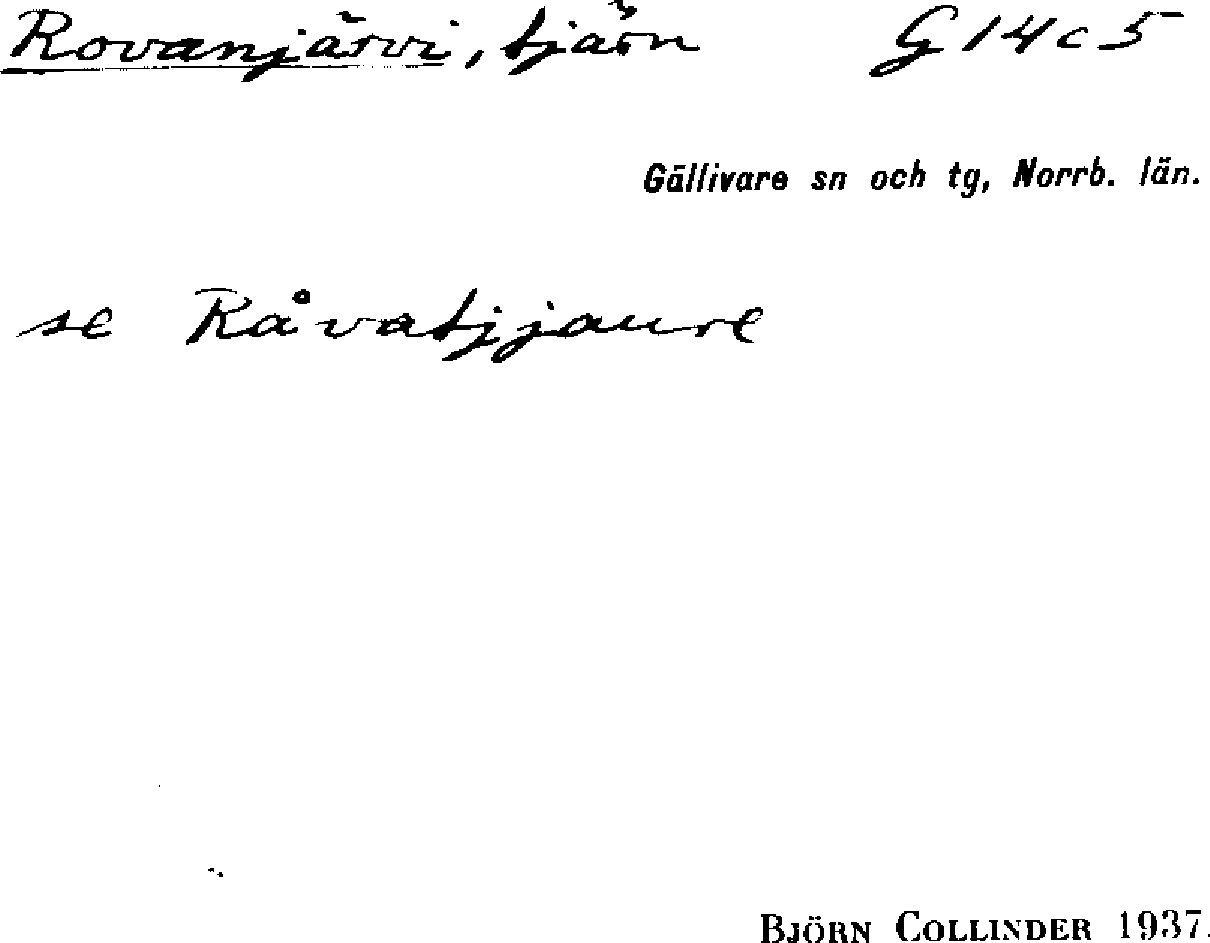 Rovanjärvi, tjärn G14c5
Gällivare sn och tg, Norrb. län.
se Råvatjjaure
BJÖRN COLLINDER 1937.